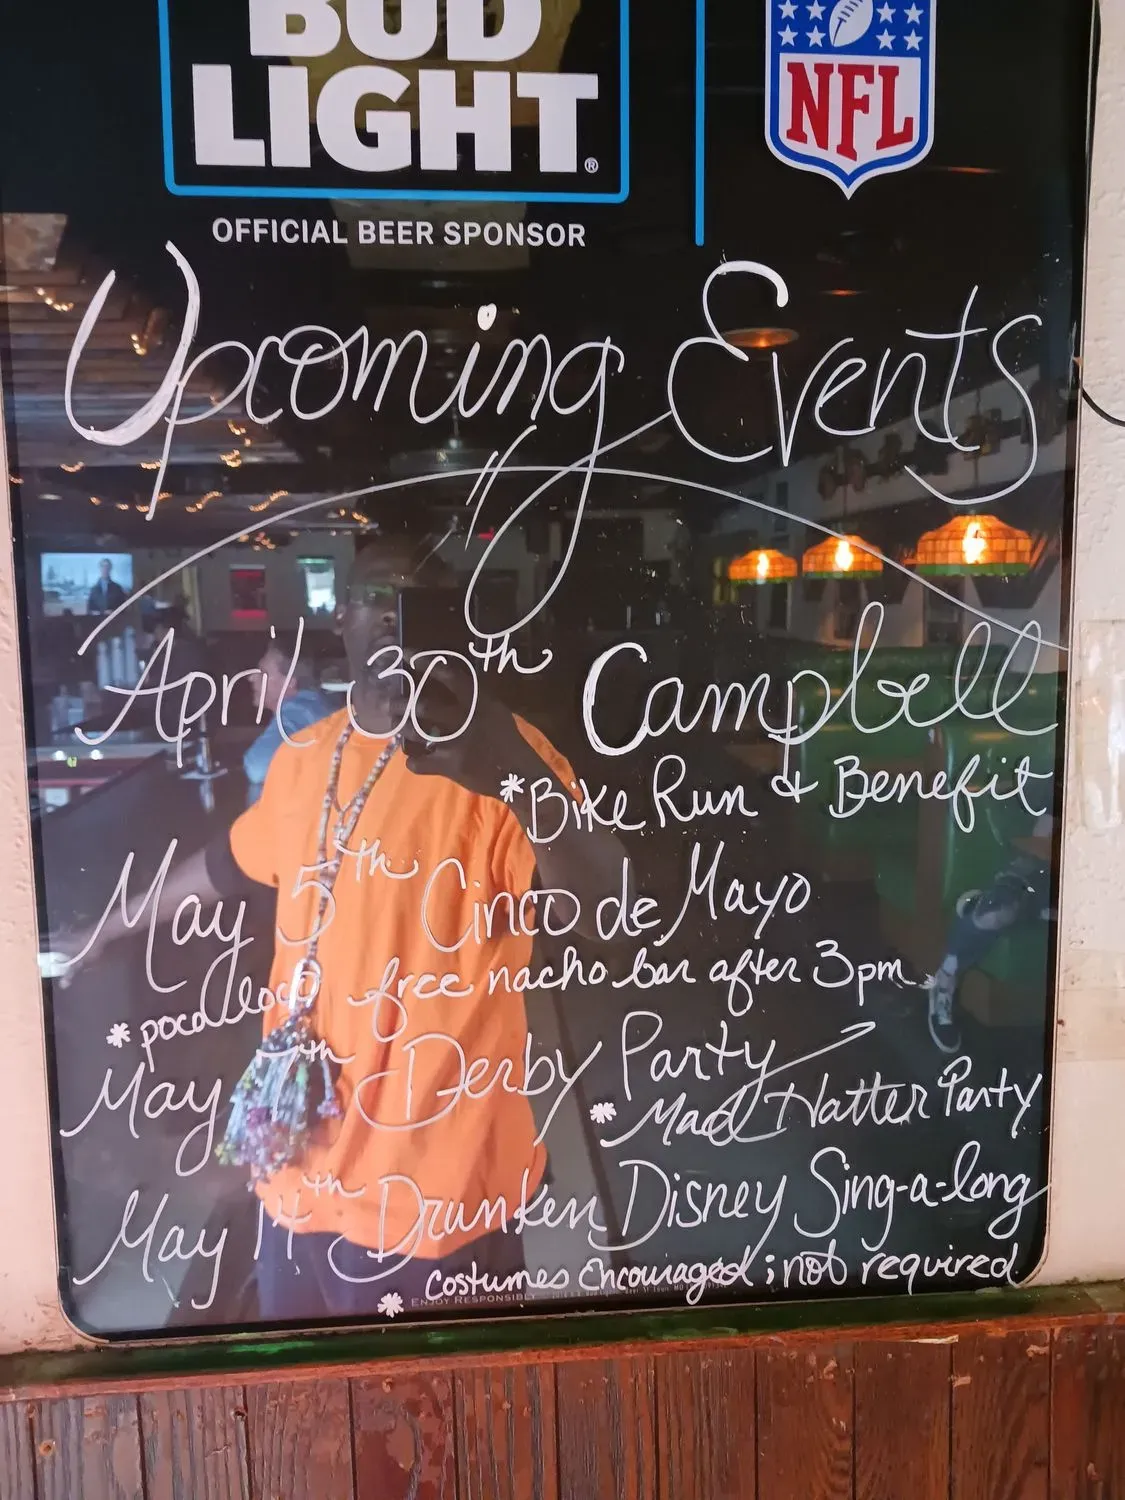 BUD
LIGHT®
OFFICIAL BEER SPONSOR
NFL
Upcoming Events
April 30th Campbell
*Bike Run & Benefit
May 5th Cinco de Mayo
*poco loco free nacho bar after 3pm
May 7th Derby Party
*Mad Hatter Party
May 14th Drunken Disney Sing-a-long
*costumes encouraged; not required
ENJOY RESPONSIBLY